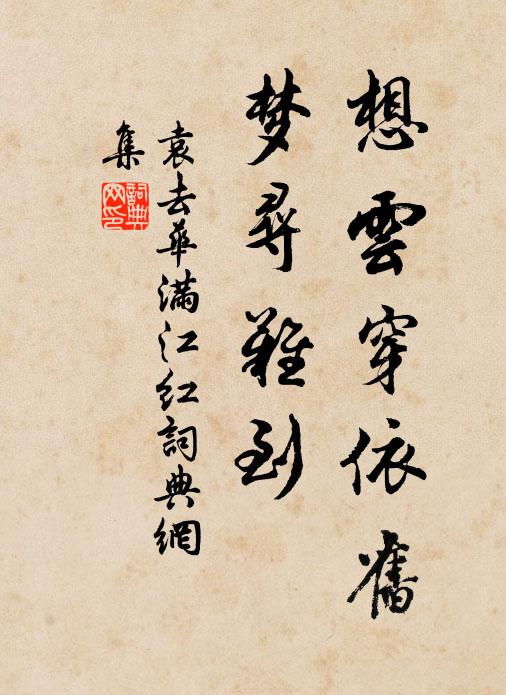 想雲穿依舊
梦尋難到
袁去華滿江红詞典網
集
詞典
网印